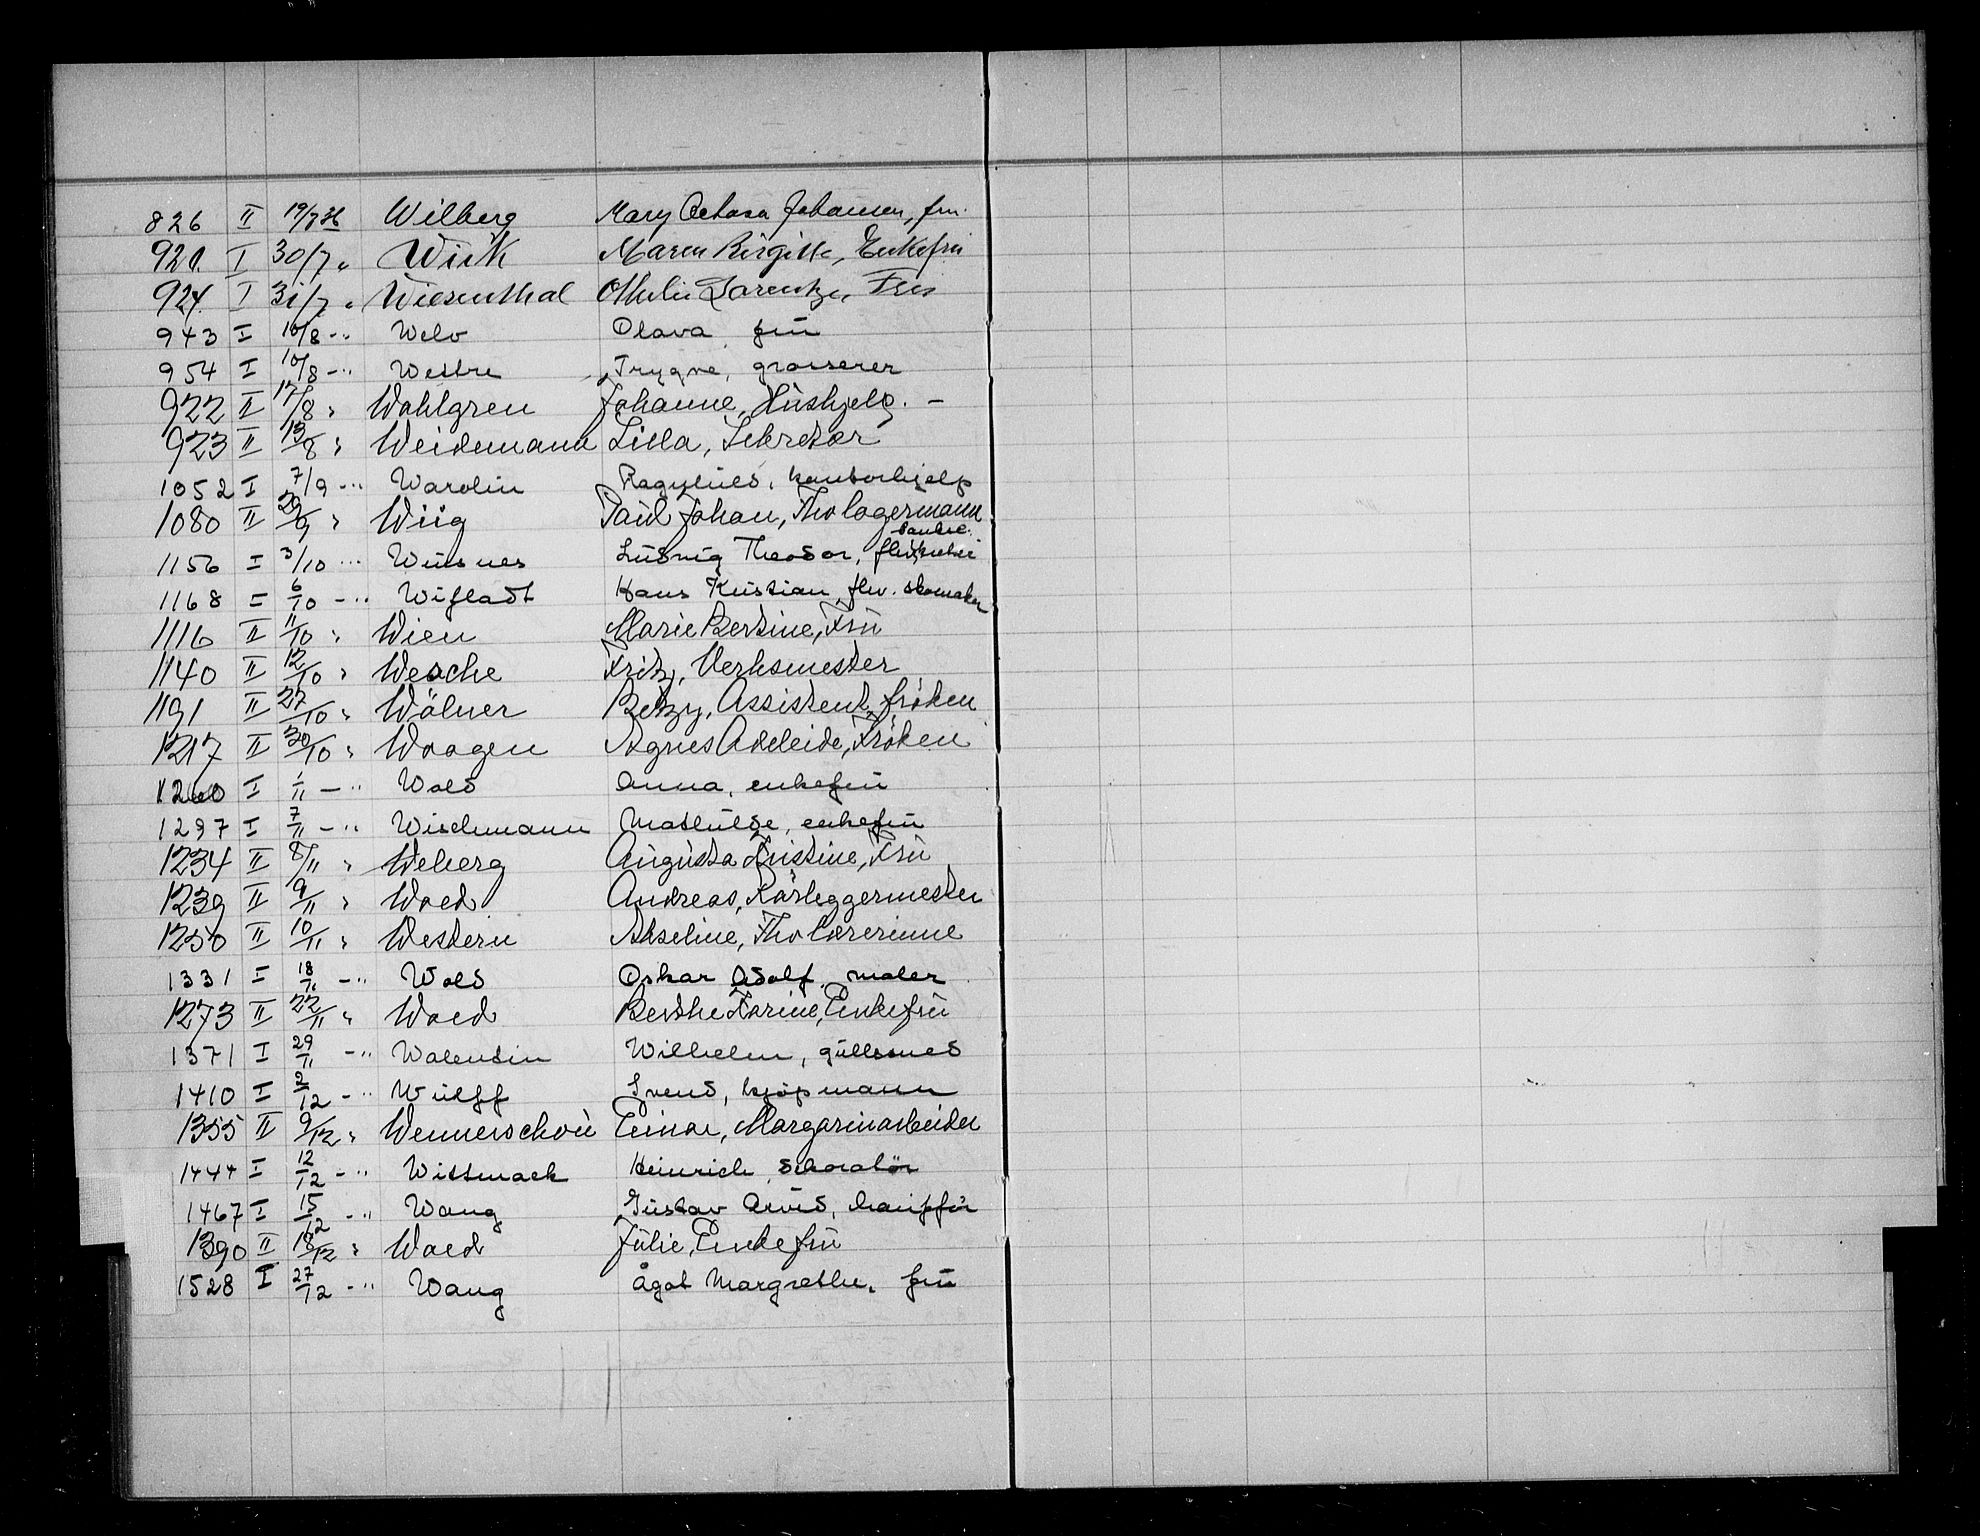 826 II 19/7 36 Wilberg Mary Johansen, fru.
921. I 30/7 " Wiik Maren Birgitte, Enkefru
924. I 31/7 " Wiesenthal Othelie Lorentze, Fru
943 I 10/8 -"- Welo Olava, frü
954 I 10/8 -"- Westre Trygve, grosserer
922 II 12/8 " Wahlgren Johanne, Hüshjelp. -
923 II 13/8 " Weidemann Lilla, Sekretær
1052 I 7/9 -"- Warolin Ragnhild, kontorhjelp
1080 II 29/9 " Wiig Paül Johan, Fhv lagermann
1156 I 3/10 -"- Lüdvig Theodor, fhv.
1168 I 6/10 -"- Wifladt Hans Kristian, fhv. skomaker
1116 II 11/10 " Wien Marie Bertine, Frü
1140 II 12/10 " Wesche Fritz, Verksmester
1191 II 27/10 " Wölner Betzy, Assistent, frøken
1217 II 30/10 " Waagen Agnes Adeleide, Frøken
1260 I 1/11 -"- Wold Anna, enkefrü
1297 I 7/11 -"- Wischmann Mathilde, enkefrü
1234 II 8/11 " Weberg Augüsta Kristine, Frü
1239 II 9/11 " Wold Andreas, Rørleggermester
1250 II 10/11 " Western Akseline, Fhv Lærerinne
1331 I 18/11 -"- Wold Oskar Adolf, maler
1273 II 22/11 " Wold Berthe Karine, Enkefrü
1371 I 29/11 -"- Walentin Wilhelm, güllsmed
1410 I 2/12 -"- Wülff Svend, kjøpmann
1355 II 9/12 " Wennerschou Einar, Margarinarbeider
1444 I 12/12 -"- Wittmack Heinrich, dekoratör
1467 I 15/12 -"- Wang Güstav Arvid, chauffür
1390 II 18/12 " Wold Jülie, Enkefrü
1528 I 27/12 -"- Wang Ågot Margrethe, frü